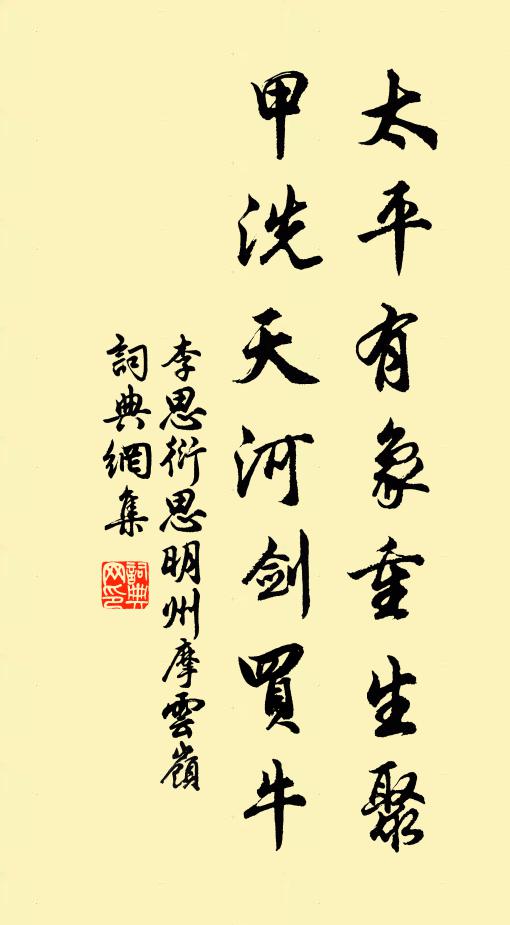 太平有象重生聚
甲洗天河劍買牛
李思衍思明州摩雲嶺
詞典網集
詞典網印